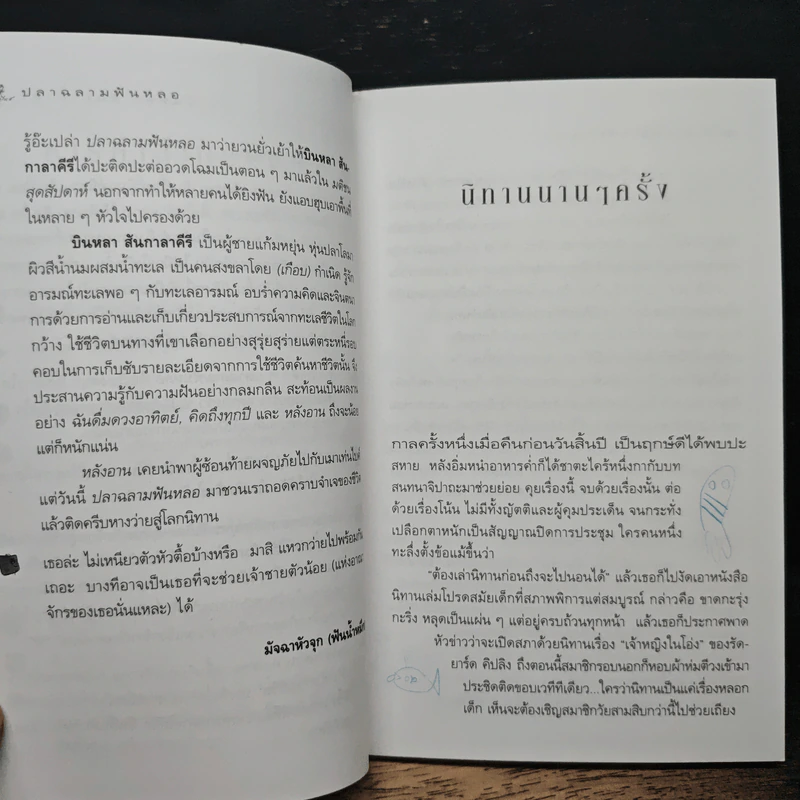 ปลาฉลามฟันหลอ
รู้อ๊ะเปล่า ปลาฉลามฟันหลอ มาว่ายวนยั่วเย้าให้บินหลา สัน-
กาลาคีรีได้ปะติดปะต่ออวดโฉมเป็นตอน ๆ มาแล้วใน มติชน
สุดสัปดาห์ นอกจากทำให้หลายคนได้ยิงฟัน ยังแอบฮุบเอาพื้นที่
ในหลาย ๆ หัวใจไปครองด้วย
บินหลา สันกาลาคีรี เป็นผู้ชายแก้มหยุ่น หุ่นปลาโลมา
ผิวสีน้ำนมผสมน้ำทะเล เป็นคนสงขลาโดย (เกือบ) กำเนิด รู้จัก
อารมณ์ทะเลพอ ๆ กับทะเลอารมณ์ อบร่ำความคิดและจินตนา
การด้วยการอ่านและเก็บเกี่ยวประสบการณ์จากทะเลชีวิตในโลก
กว้าง ใช้ชีวิตบนทางที่เขาเลือกอย่างสุรุ่ยสุร่ายแต่ตระหนี่รอบ
คอบในการเก็บซับรายละเอียดจากการใช้ชีวิตค้นหาชีวิตนั้น จึง
ประสานความรู้กับความฝันอย่างกลมกลืน สะท้อนเป็นผลงาน
อย่าง ฉันดื่มดวงอาทิตย์, คิดถึงทุกปี และ หลังอาน ถึงจะน้อย
แต่ก็หนักแน่น
หลังอาน เคยนำพาผู้ซ้อนท้ายผจญภัยไปกับเมาเท่นไบค์
แต่วันนี้ ปลาฉลามฟันหลอ มาชวนเราถอดคราบจำเจของชีวิต
แล้วติดครีบหางว่ายสู่โลกนิทาน
เธอล่ะ ไม่เหนียวตัวหัวตื้อบ้างหรือ มาสิ แหวกว่ายไปพร้อมกัน
เถอะ บางทีอาจเป็นเธอที่จะช่วยเจ้าชายตัวน้อย (แห่งอาณา
จักรของเธอนั่นแหละ) ได้
มัจฉาหัวจุก (ฟันน้ำหมึก)
นิทานนานๆครั้ง
กาลครั้งหนึ่งเมื่อคืนก่อนวันสิ้นปี เป็นฤกษ์ดีได้พบปะ
สหาย หลังอิ่มหนำอาหารค่ำก็ได้ชาตะไคร้หนึ่งกากับบท
สนทนาจิปาถะมาช่วยย่อย คุยเรื่องนี้ จบด้วยเรื่องนั้น ต่อ
ด้วยเรื่องโน้น ไม่มีทั้งญัตติและผู้คุมประเด็น จนกระทั่ง
เปลือกตาหนักเป็นสัญญาณปิดการประชุม ใครคนหนึ่ง
ทะลึ่งตั้งข้อแม้ขึ้นว่า
“ต้องเล่านิทานก่อนถึงจะไปนอนได้” แล้วเธอก็ไปงัดเอาหนังสือ
นิทานเล่มโปรดสมัยเด็กที่สภาพพิการแต่สมบูรณ์ กล่าวคือ ขาดกะรุ่ง
กะริ่ง หลุดเป็นแผ่น ๆ แต่อยู่ครบถ้วนทุกหน้า แล้วเธอก็ประกาศพาด
หัวข่าวว่าจะเปิดสภาด้วยนิทานเรื่อง “เจ้าหญิงในโอ่ง” ของรัด-
ยาร์ด คิปลิง ถึงตอนนี้สมาชิกรอบนอกก็หอบผ้าห่มตีวงเข้ามา
ประชิดติดขอบเวทีทีเดียว...ใครว่านิทานเป็นแค่เรื่องหลอก
เด็ก เห็นจะต้องเชิญสมาชิกวัยสามสิบกว่านี้ไปช่วยเถียง